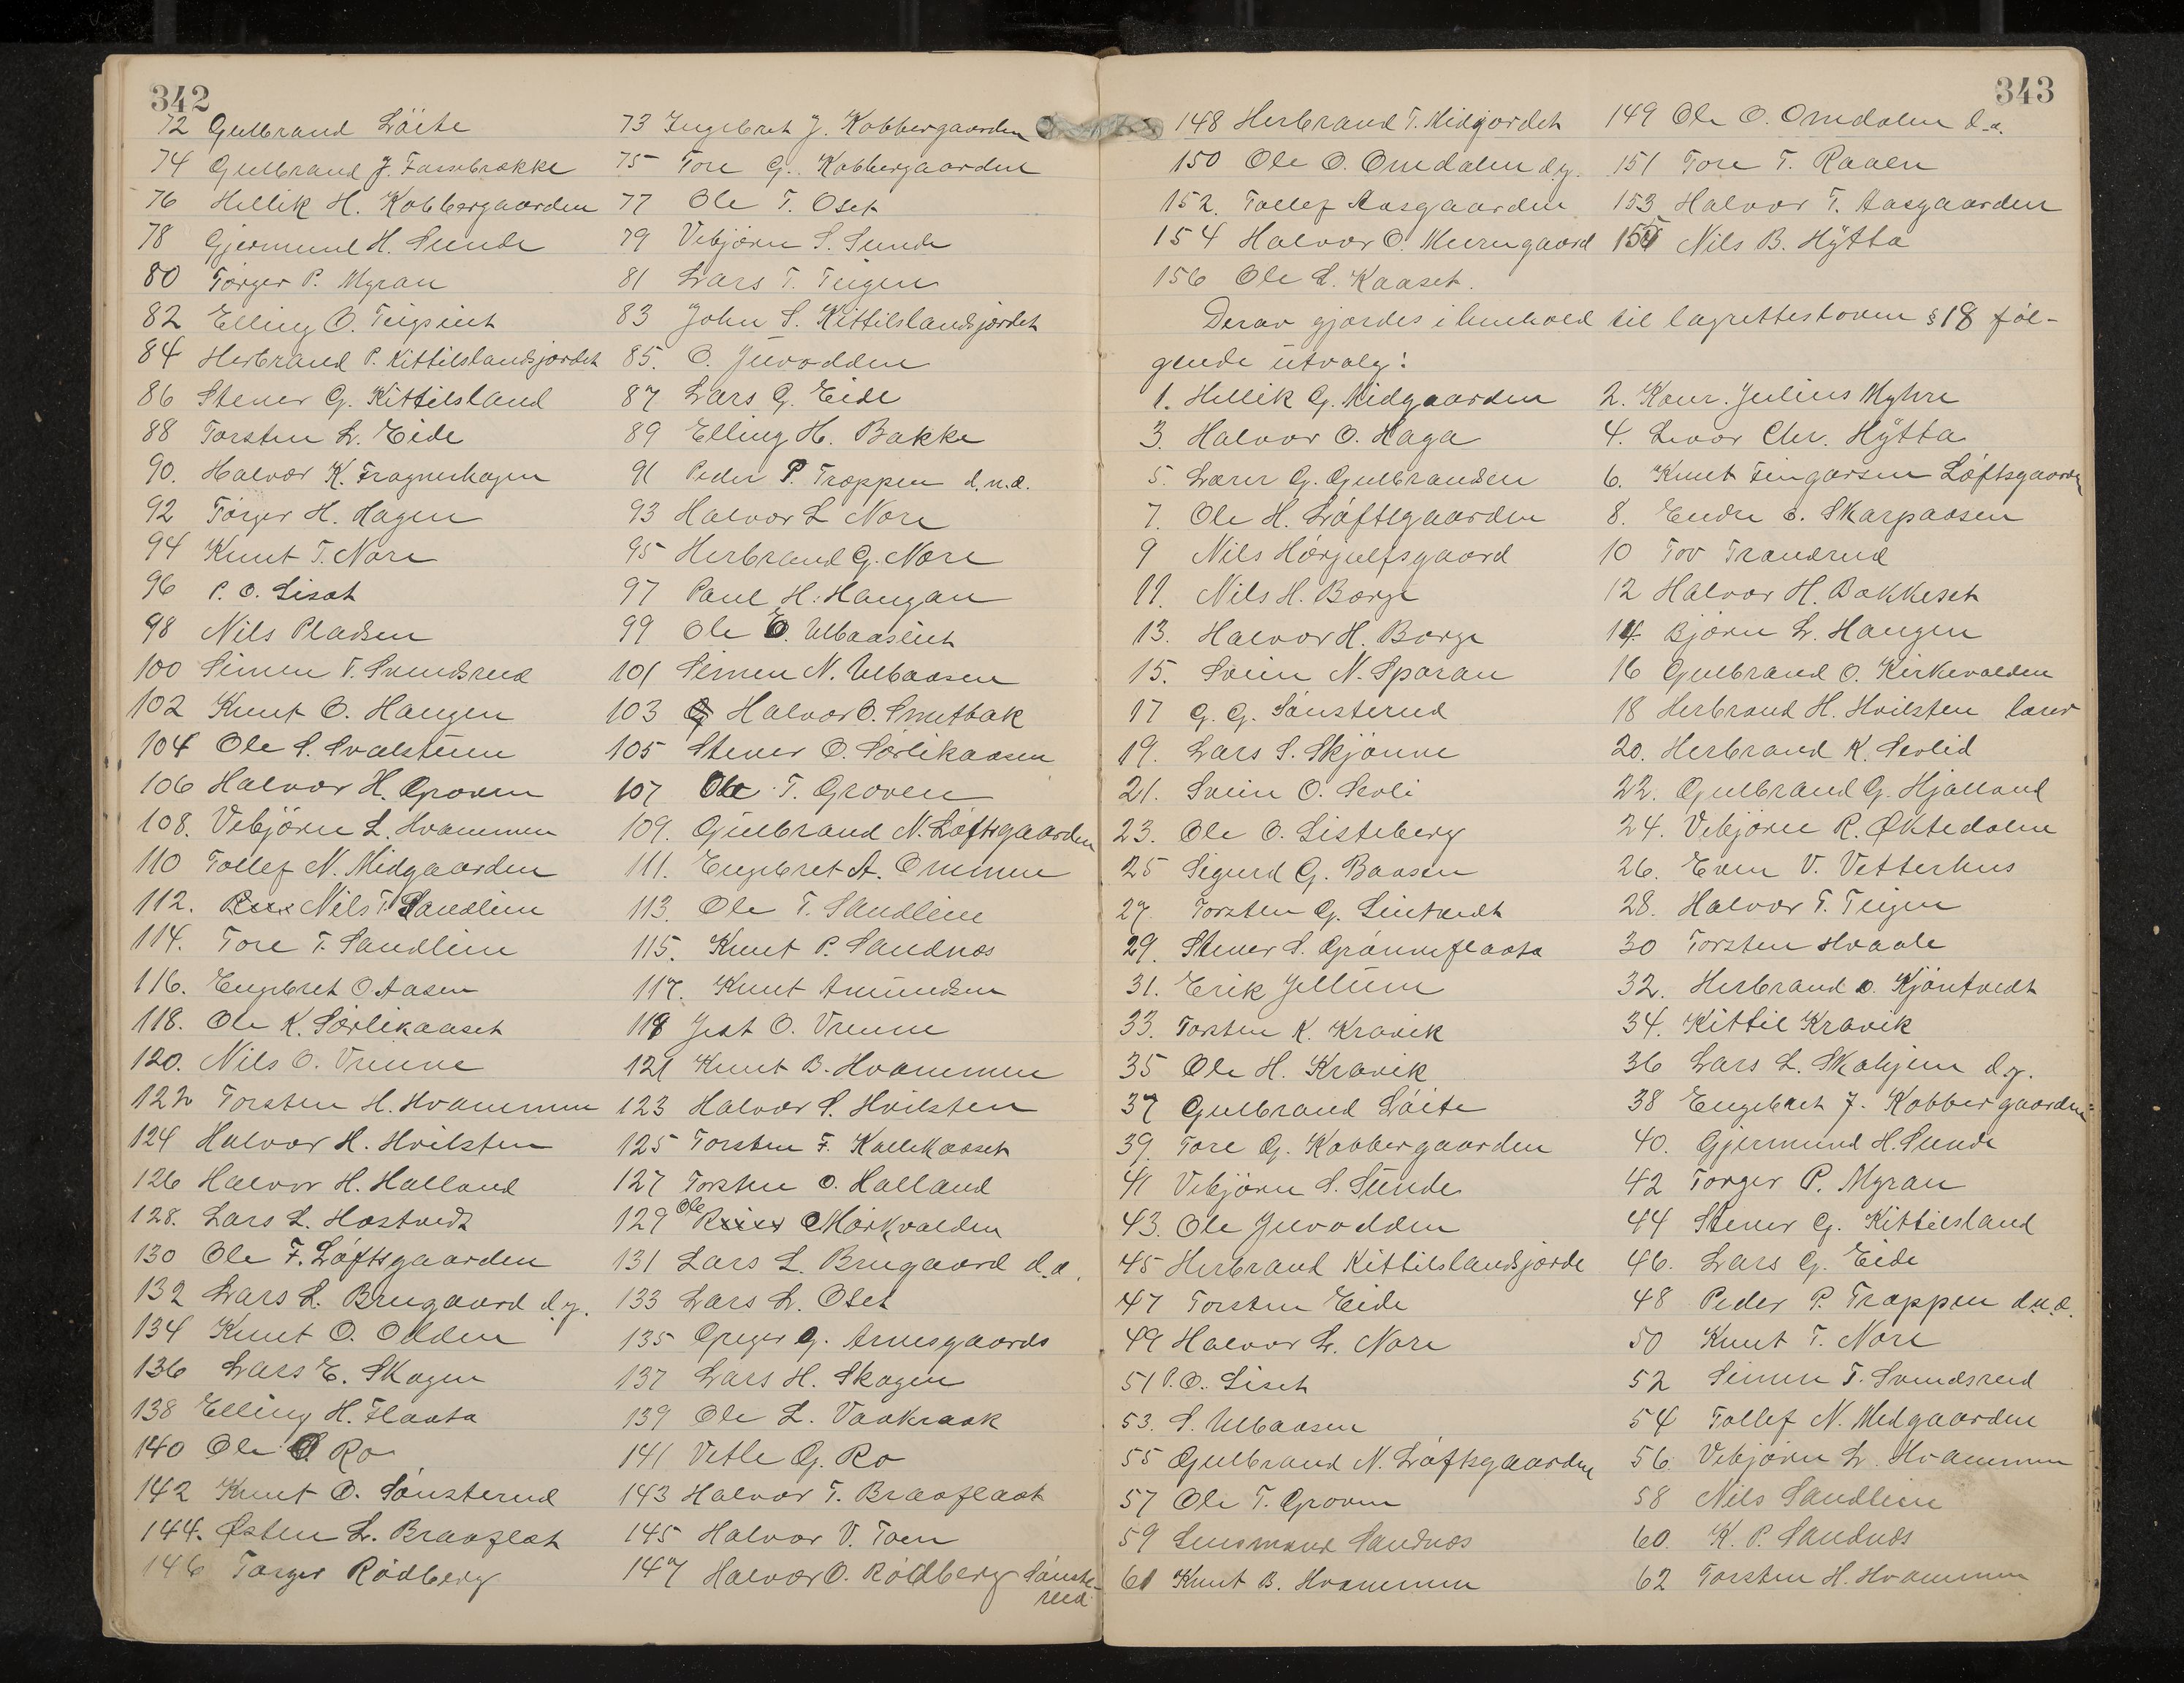 342
72 Gulbrand Löite 73 Ingebret J. Kobbergaarden
74 Gulbrand J. Fassebrække 75 Tore G. Kobbergaarden
76 Hellik H. Kobbergaarden 77 Ole T. Oset
78 Gjermund H. Sunde 79 Vebjörn S. Sunde
80 Torger P. Myran 81 Lars T. Teigen
82 Elling O. 83 John S. Kittilslandsjordet
84 Herbrand P. Kittilslandsjordet 85. O. Juvodden
86 Stener G. Kittilsland 87 Lars G. Eide
88 Torsten L. Eide 89 Elling H. Bakke
90. Halvor K. Fragnushagen 91 Peder P. Trappen d.n.e.
92 Torger H. Hagen 93 Halvor L Nore
94 Knut T. Nore 95 Herbrand G. Nore
96 P. O. Liset 97 Paul H. Haugan
98 Nils Pladsen 99 Ole O. Ulbaaseiet
100 Simen T. Svendsrud 101 Simen N. Ulbaasen
102 Knut O. Haugen 103 Halvor O. Smutbak
104 Ole S. Svalstuen 105 Stener O. Sørlikaasen
106 Halvor H. Groven 107 Ole T. Groven
108. Vebjörn L. Hvammen 109. Gulbrand N. Løftsgaarden
110 Tollef N. Midgaarden 111. Engebret A. Ommen
112. Nils T. Sandlien 113. Ole T. Sandlien
114. Tore T. Sandlien 115. Knut P. Sandnes
116. Engebret O Aasen 117. Knut Amundsen
118. Ole K. Sørlikaaset 119 Jest O. Vrenne
120. Nils O. Vrenne 121 Knut B. Hvammen
122 Torsten H. Hvammen 123 Halvor S. Hvilsten
124 Halvor H. Hvilsten 125 Torsten F. Kallekaaset
126 Halvor H. Halland 127 Torsten O. Halland
128. Lars L. Hostvedt 129 Ole Mørkvolden
130 Ole F. Løftsgaarden 131 Lars L. Brugaard d.e.
132 Lars L. Brugaard d.y. 133 Lars L. Oset
134 Knut O. Odden 135 Greger G. Arnesgaards
136 Lars E. Skogen 137 Lars H. Skogen
138 Elling H. Flaata 139 Ole L. Vaakraak
140 Ole O Ro 141 Vetle G. Ro
142 Knut O. Sønsterud 143 Halvor T. Braaflaat
144. Østen L. Braaflat 145 Halvor V. Toen
146 Torger Rödberg 147 Halvor O. Rödberg Sønste-
rud
343
148 Herbrand T. Midgordet 149 Ole O. Omdalen d.e.
150 Ole O. Omdalen d.y. 151 Tore T. Raaen
152. Tollef Aasgaarden 153 Halvor T. Aasgaarden
154 Halvor O. Murugaard 155 Nils B. Hÿtta
156 Ole L. Kaaset.
Derav gjordes i henhold til lagretteloven § 18 føl-
gende utvalg:
1. Hellik G. Midgaarden 2. Konr. Julius Myhre
3. Halvor O. Haga 4. Levor Chr. Hÿtta
5. Lærer G. Gulbrandsen 6. Knut Fingarsen Løftsgaarden
7. Ole H. Løftsgaarden 8. Endre O. Skarpaasen
9 Nils Hørjulfsgaard 10 Tov Trandrud
11. Nils H. Borge 12 Halvor H. Bakkeset
13. Halvor H. Borge 14 Bjørn L. Haugen
15. Svein N. Sporan 16 Gulbrand O. Kirkevolden
17 G. G. Sønsterud 18 Herbrand H. Hvilsten lærer
19. Lars S. Skjønne 20. Herbrand K. Sevlid
21. Svein O. Sevli 22. Gulbrand G. Hjalland
23. Ole O. Listeberg 24. Vebjørn R. Øktedalen
25 Sigurd G. Baasen 26. Even V. Vetterhus
27. Torsten G. Sintvedt 28. Halvor T. Teigen
29. Stener S. Grønneflaata 30 Torsten Hvaale
31. Erik Jellum 32. Herbrand O. Kjøntvedt
33. Torsten K. Kravik 34. Kittil Kravik
35 Ole H. Kravik 36 Lars L. Skahjem d.y.
37 Gulbrand Løite 38 Engebret J. Kobbergaarden
39. Tore G. Kobbergaarden 40. Gjermund H. Sunde
41 Vebjørn S. Sunde 42 Torger P. Myran
43. Ole Juvodden 44 Stener G. Kittilsland
45 Herbrand Kittilslandsjorde 46. Lars G. Eide
47 Torsten Eide 48 Peder P. Trappen d.n.e.
49 Halvor L. Nore 50 Knut T. Nore
51 P. O. Liset 52 Simen T. Svendsrud
53. S. Ulbaasen 54 Tollef N. Midgaarden
55 Gulbrand N. Løftsgaarden 56 Vebjørn L. Hvammen
57 Ole T. Groven 58 Nils Sandlien
59 Lensmand Sandnes 60. K. P. Sandnes
61 Knut B. Hvammen 62 Torsten H. Hvammen